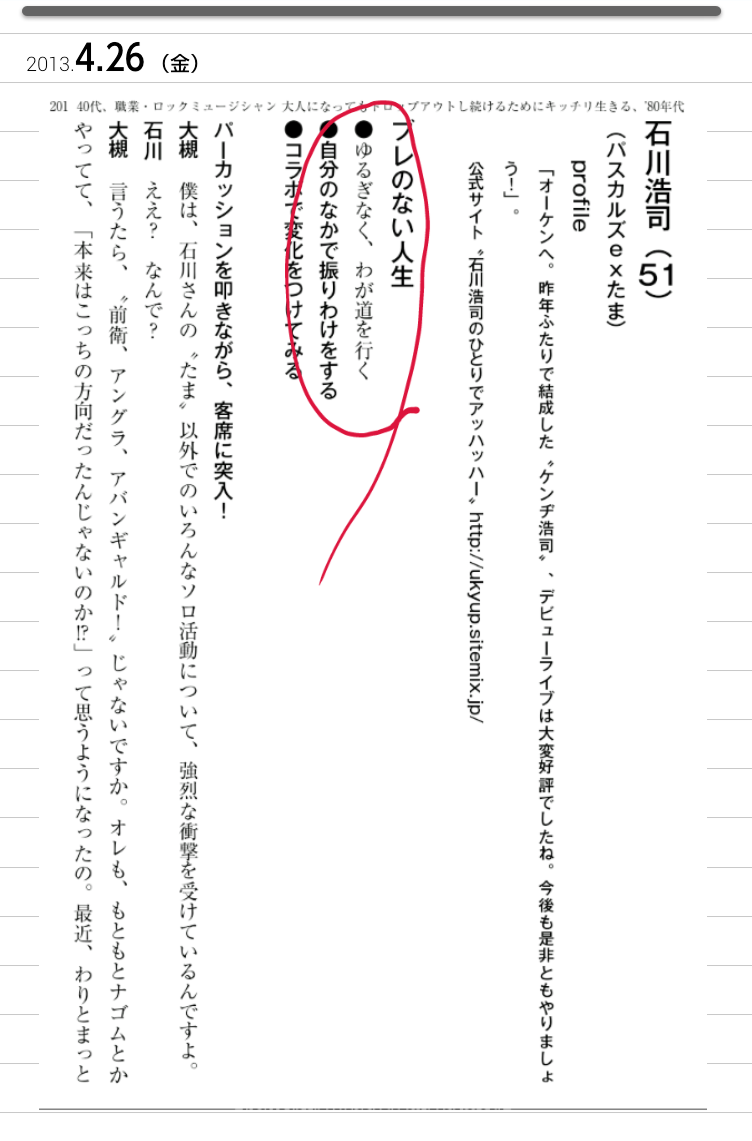 2013.4.26（金）
201 40代、職業・ロックミュージシャン 大人になってもドロップアウトし続けるためにキッチリ生きる、'80年代
石川浩司（51）
（パスカルズｅｘたま）
profile
「オーケンへ。昨年ふたりで結成した〝ケンヂ浩司〟、デビューライブは大変好評でしたね。今後も是非ともやりましょ
う！」。
公式サイト〝石川浩司のひとりでアッハッハー〟http://ukyup.sitemix.jp/
ブレのない人生
●ゆるぎなく、わが道を行く
●自分のなかで振りわけをする
●コラボで変化をつけてみる
パーカッションを叩きながら、客席に突入！
大槻　僕は、石川さんの〝たま〟以外でのいろんなソロ活動について、強烈な衝撃を受けているんですよ。
石川　ええ？　なんで？
大槻　言うたら、〝前衛、アングラ、アバンギャルド！〟じゃないですか。オレも、もともとナゴムとか
やってて、「本来はこっちの方向だったんじゃないのか⁉」って思うようになったの。最近、わりとまっと